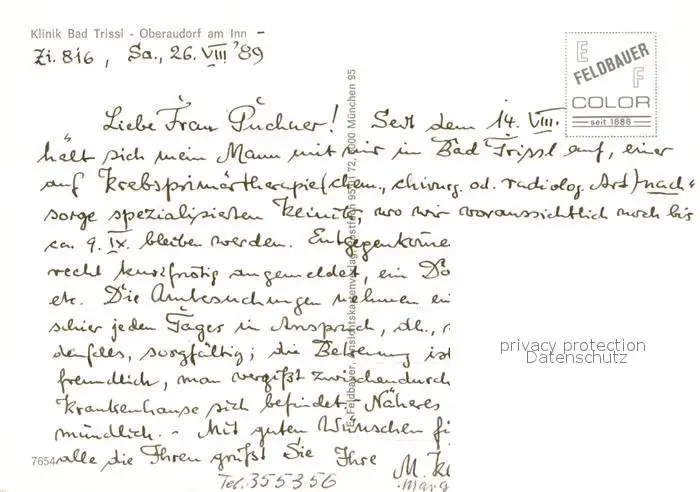 Klinik Bad Trissl - Oberaudorf am Inn -
Zi. 816, Sa., 26. VIII '89
E FELDBAUER F
COLOR
seit 1886
Liebe Frau Puchner! Seit dem 14. VIII.
hält sich mein Mann mit mir in Bad Trissl auf, einer
auf Krebsprimärtherapie (chem., chirurg. od. radiolog. Art)/nach-
sorge spezialisierten Klinik, wo wir voraussichtlich noch bis
ca. 9. IX. bleiben werden.
recht kurzfristig angemeldet, ein
etc. Die nehmen
schier jeden Tages in Anspruch, dh.,
sorgfältig; die Betreuung ist
freundlich, man vergißt zwischendurch
Krankenhause sich befindet. - Näheres
mündlich. - Mit guten Wünschen
7654 alle die Ihren grüßt Sie Ihre M.
Tel. 355356
E. Feldbauer, Ansichtskartenverlag, Postfach 95 01 72, 8000 München 95
privacy protection
Datenschutz